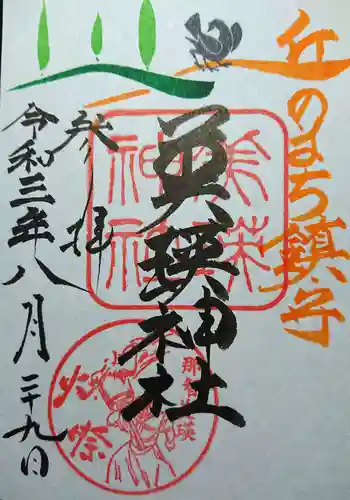 丘のまち鎮守
美瑛神社
参拝
令和三年八月二十九日
美瑛
神社
那智美瑛
火祭